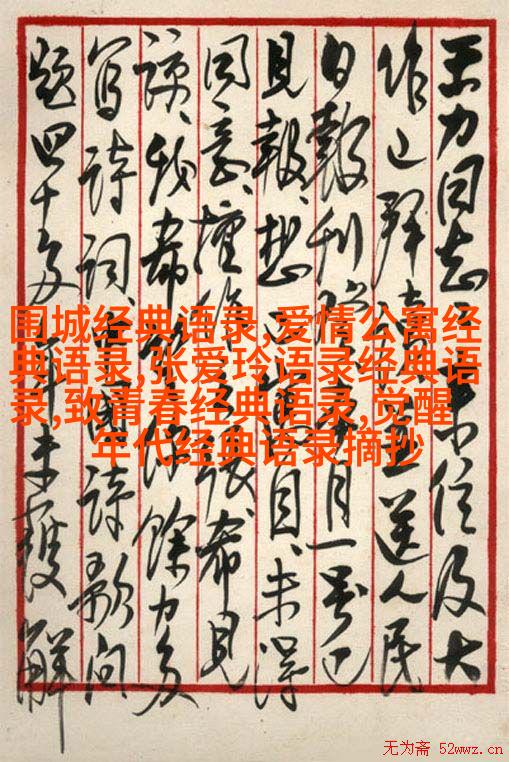 王力同志 来信及大
作已拜读 送人民
日报刊登本月一号已
见报、想已过目、未得
同意、擅作主张希见
谅、我希 你馀力多
写诗词、 国诗歌问
题四十多年未获解
围城经典语录,爱情公寓经
典语录,张爱玲语录经典语
录,致青春经典语录,觉醒
年代经典语录摘抄
无为斋 52wwz.cn